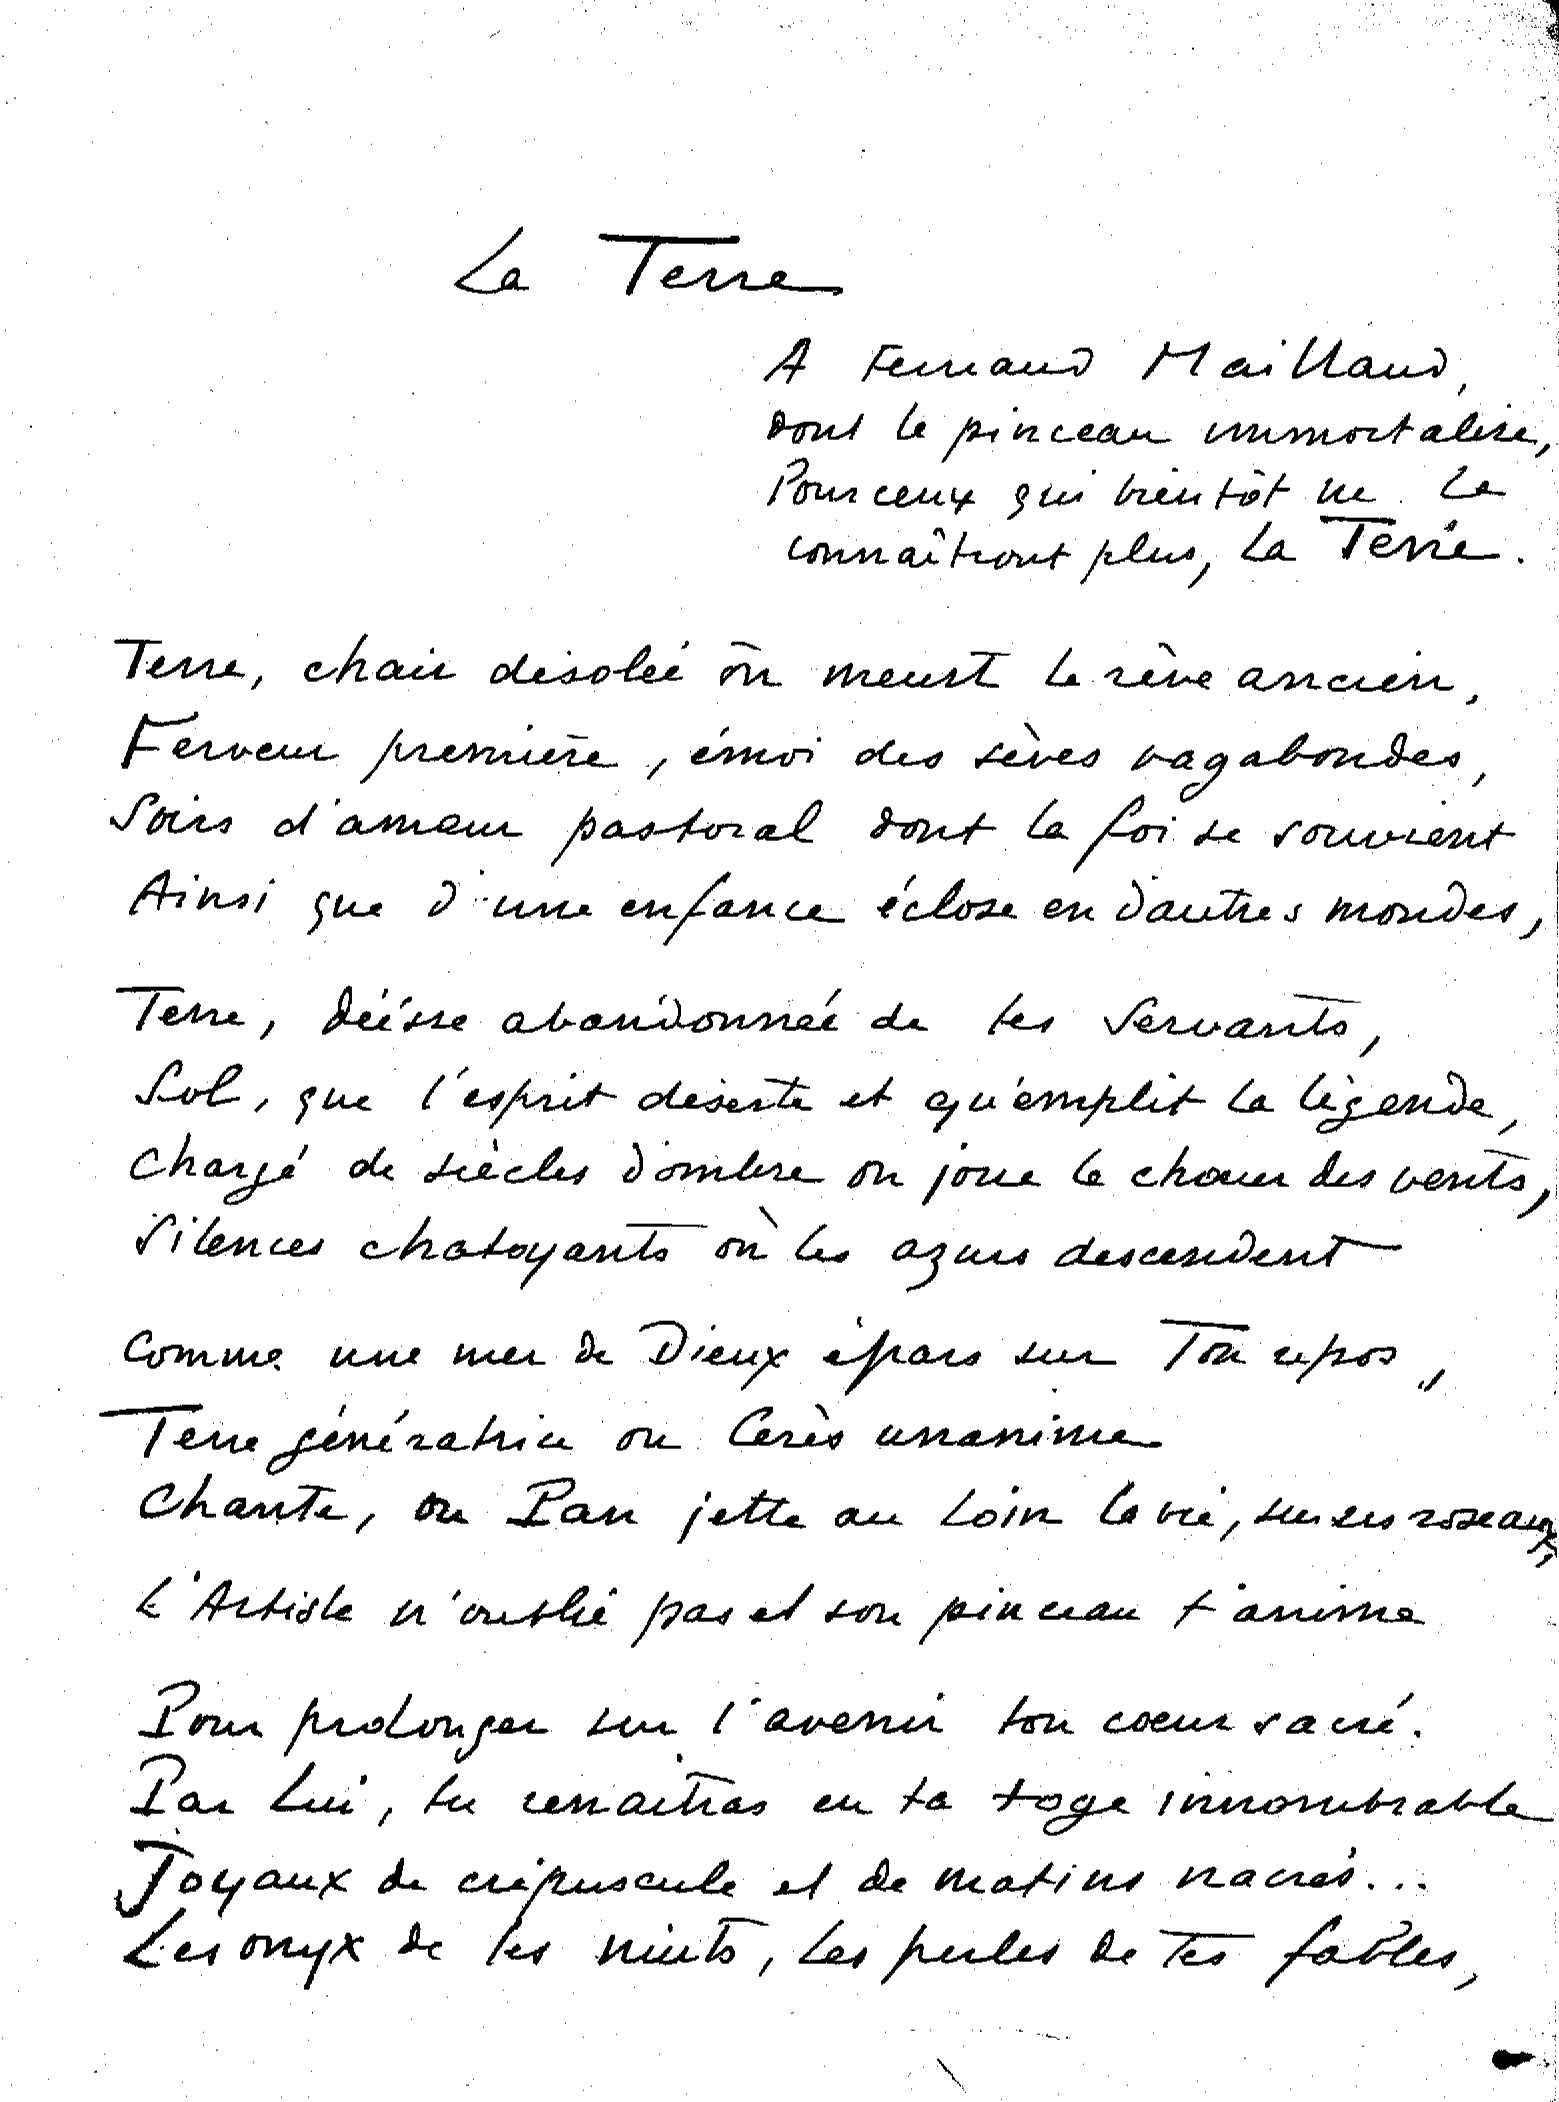 La Terre
A Fernand Maillaud,
dont le pinceau immortalise,
Pour ceux qui bientôt ne la
connaîtront plus, la Terre.
Terre, chair désolée où meurt le rêve ancien,
Ferveur première, émoi des sèves vagabondes,
Soirs d'amour pastoral dont la foi se souvient
Ainsi que d'une enfance éclose en d'autres mondes,
Terre, déesse abandonnée de tes Servants,
Sol, que l'esprit déserte et qu'emplit la légende,
Chargé de siècles d'ombre où joue le chœur des vents,
Silences chatoyants où les azurs descendent
Comme une mer de Dieux épars sur Ton repos,
Terre génératrice où Cérès unanime
Chante, où Pan jette au loin la vie, sur ses roseaux,
L'Artiste n'oublie pas et son pinceau t'anime
Pour prolonger sur l'avenir ton cœur sacré.
Par Lui, tu renaîtras en ta toge innombrable
Joyaux de crépuscule et de matins nacrés...
Les onyx de tes nuits, les perles de Tes fables,